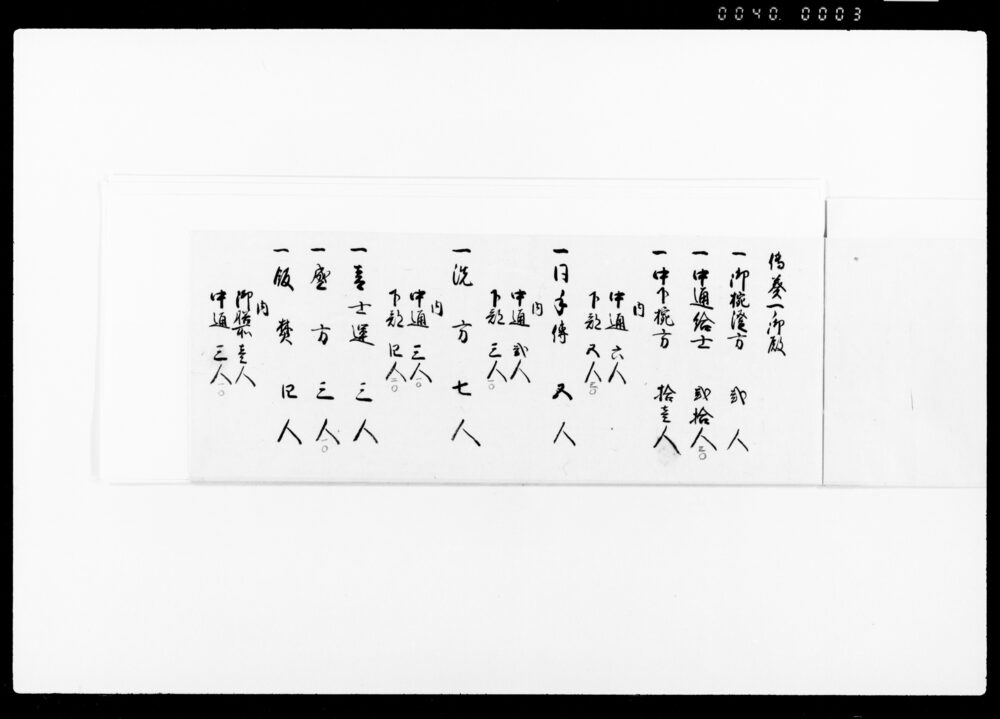 0040. 0003
一御椀漬方 弐人
一中通給士 弐拾人
一中下椀方 拾壱人
内
中通 六人
下部 五人
一同手傳 五人
内
中通 弐人
下部 三人
一洗方 七人
内
中通 三人
下部 四人
一膳士運 三人
一盛方 三人
一飯焚 四人
内
御膳所 壱人
中通 三人